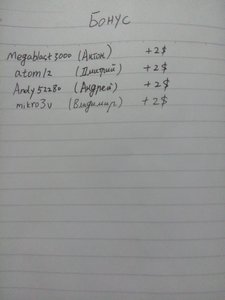 Бонус
Megablast3000 (Антон) +2$
atom12 (Дмитрий) +2$
Andy52280 (Андрей) +2$
mikro3v (Владимир) +2$